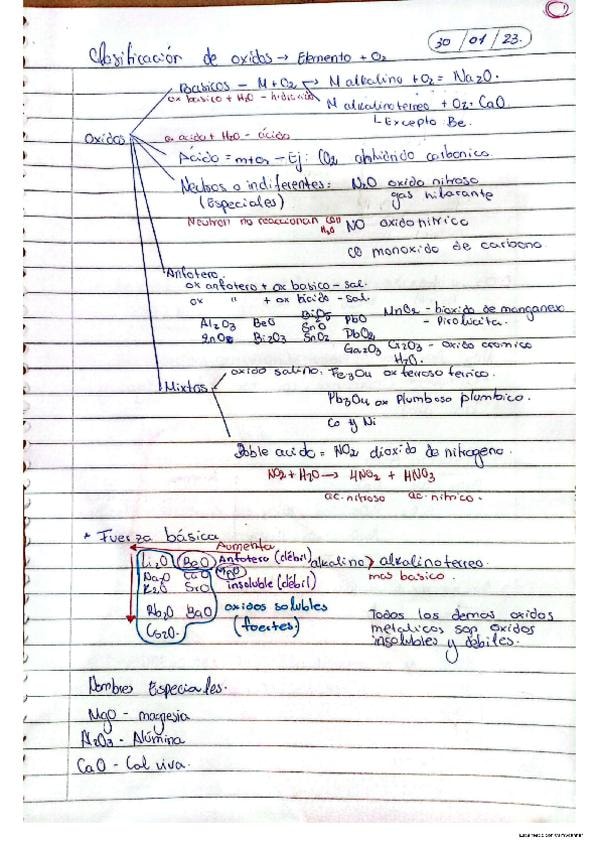 30/01/23.
Clasificación de oxidos → Elemento + O2
Basicos - M + O2 → M alkalino + O2 = Na2O.
ox basico + H2O - hidroxido
M alkalinoterreo + O2 - CaO
Excepto Be.
Oxidos
ox acido + H2O - ácido
Ácido = m + O2 - Ej: CO2 anhidrido carbonico.
Neutros o indiferentes: N2O oxido nitroso
(Especiales) gas hilarante
Neutron no reaccionan con H2O
NO oxido nitrico
CO monoxido de carbono
Anfotero.
ox anfotero + ox basico - sal.
ox " + ox ácido - sal.
Al2O3 BeO SnO PbO MnO2 - bioxido de manganeso
- Pirolucita.
ZnO Bi2O3 SnO2 PbO2
Ga2O3 Cr2O3 - oxido cromico
H2O.
Mixtos
oxido salino: Fe3O4 ox ferroso ferrico.
Pb3O4 ox Plumboso plumbico.
Co y Ni
Doble acido = NO2 dioxido de nitrogeno.
NO2 + H2O → HNO2 + HNO3
ac. nitroso ac. nitrico.
* Fuerza básica
Aumenta
Li2O BeO Anfotero (débil) alkalino > alkalinoterreo.
Na2O CaO MgO insoluble (débil) mas basico.
K2O SrO
Rb2O BaO oxidos solubles
Cs2O. (fuertes)
Todos los demas oxidos
metalicos son oxidos
insolubles y débiles.
Nombres Especiales.
MgO - magnesia
Al2O3 - Alúmina
CaO - Cal viva.